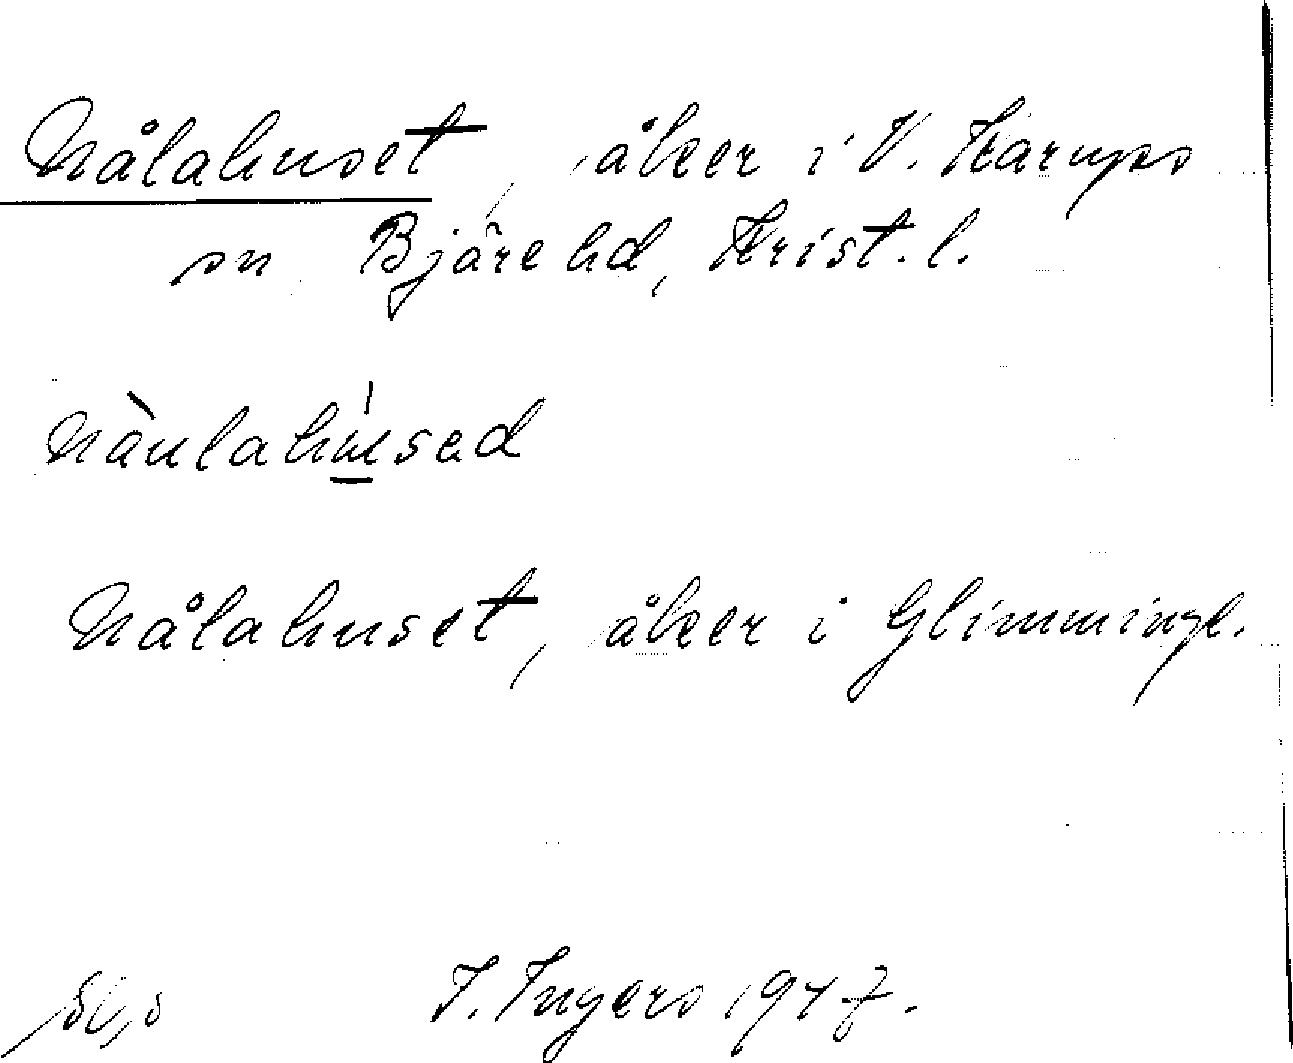 Nålahuset, åker i V. Karups
sn, Bjäre hd, Krist. l.
nàulahúsad
Nålahuset, åker i Glimminge.
I. Ingers 1947.